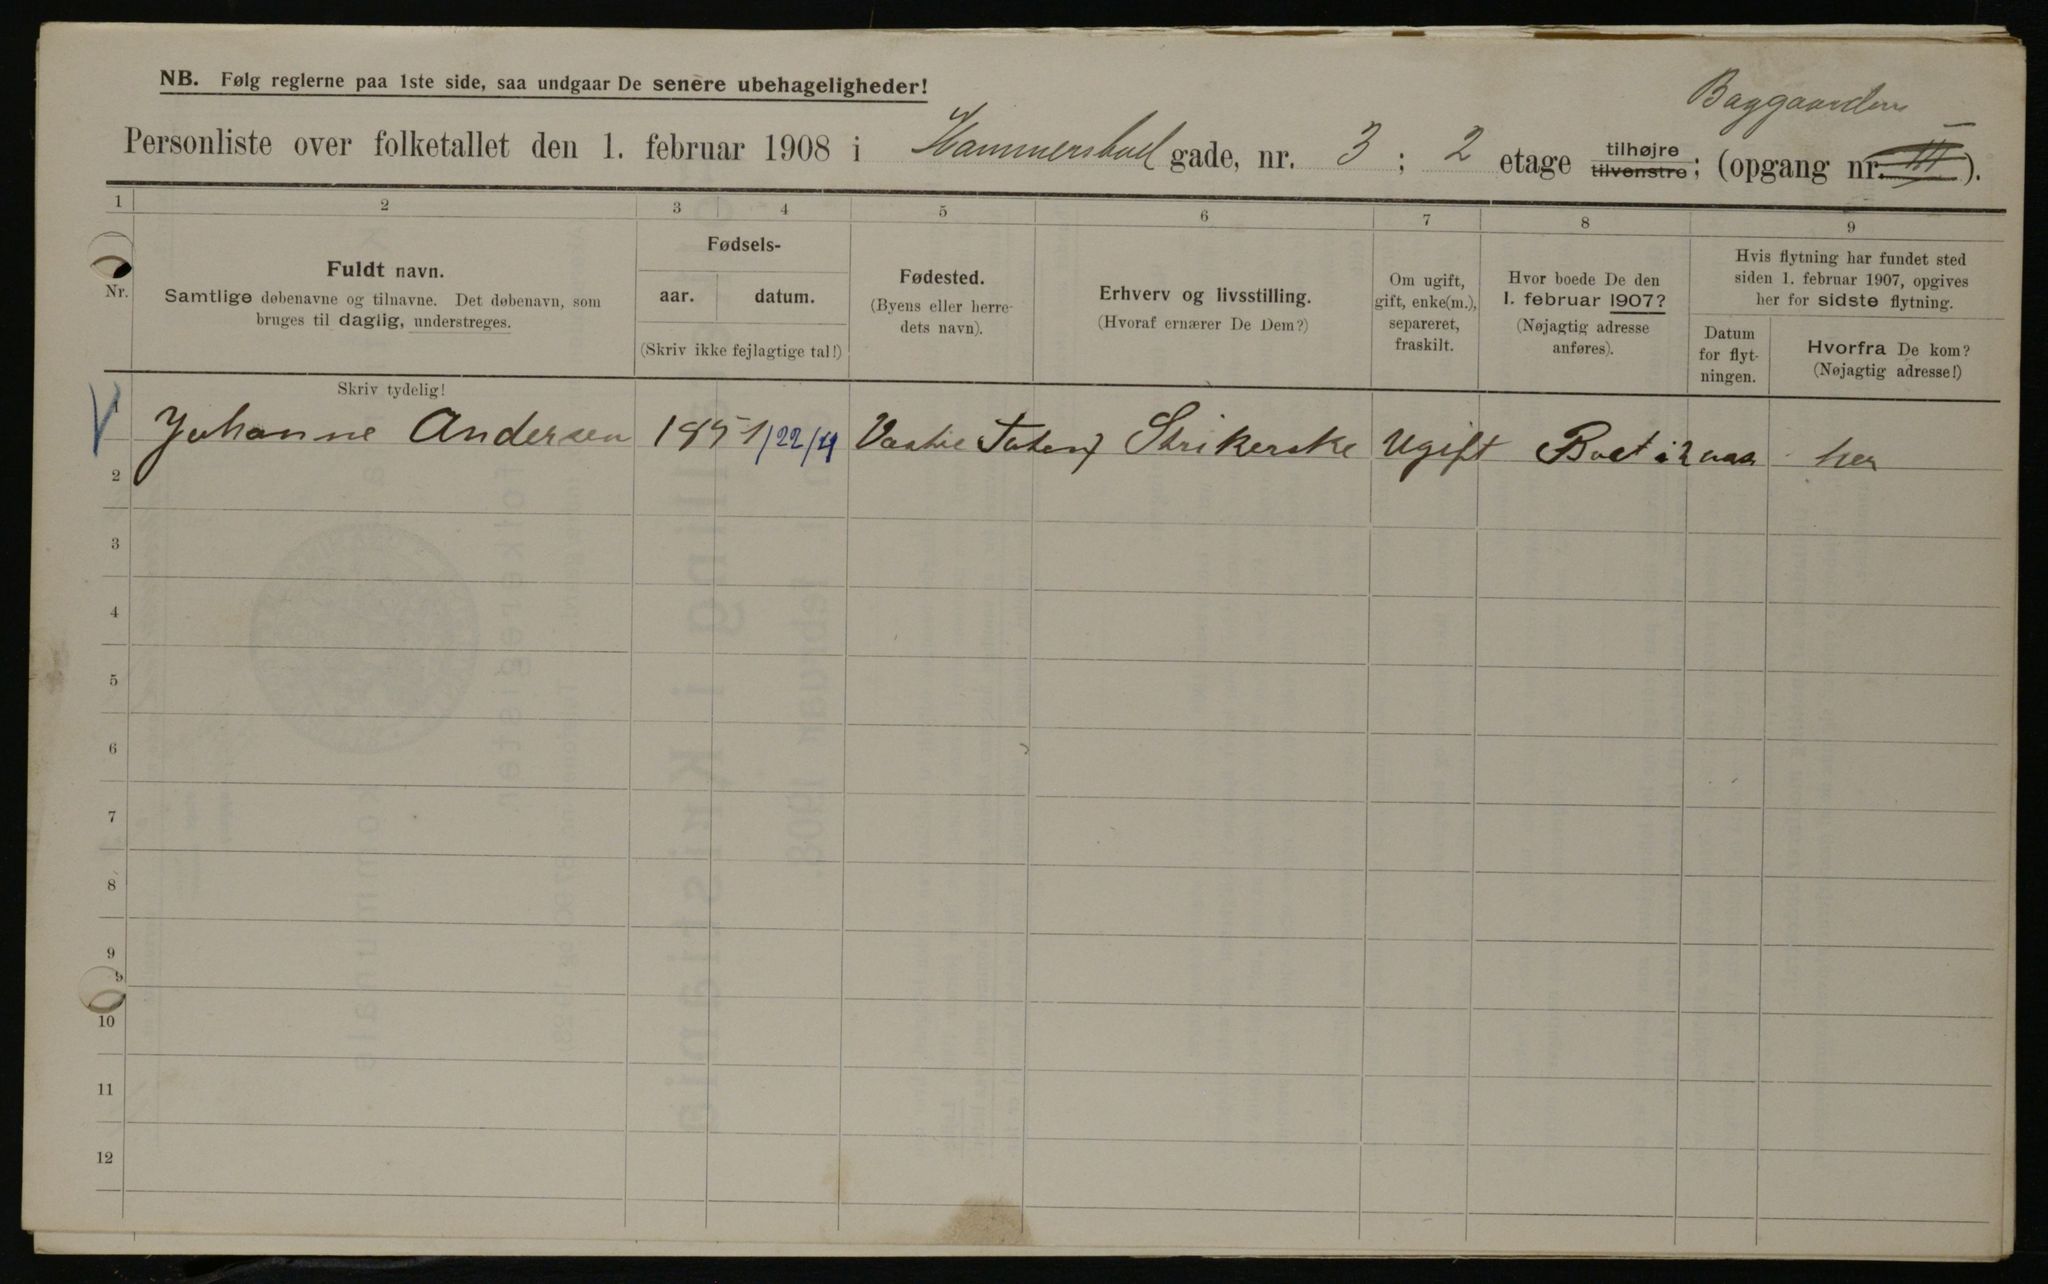 NB. Følg reglerne paa 1ste side, saa undgaar De senere ubehageligheder!
Baggaarden
Personliste over folketallet den 1. februar 1908 i Hammersbull gade, nr. 3 ; 2 etage tilhøjre tilvenstre ; (opgang nr. III ).
1 2 3 4 5 6 7 8 9
Nr.
Fuldt navn.
Samtlige døbenavne og tilnavne. Det døbenavn, som
bruges til daglig, understreges.
Skriv tydelig!
Fødsels-
aar. datum.
(Skriv ikke fejlagtige tal!)
Fødested.
(Byens eller herre-
dets navn).
Erhverv og livsstilling.
(Hvoraf ernærer De Dem?)
Om ugift,
gift, enke(m.),
separeret,
fraskilt.
Hvor boede De den
1. februar 1907?
(Nøjagtig adresse
anføres).
Hvis flytning har fundet sted
siden 1. februar 1907, opgives
her for sidste flytning.
Datum
for flyt-
ningen.
Hvorfra De kom?
(Nøjagtig adresse!)
1 Johanne Andersen 1851 /22/4 Vestre Toten Strikerske Ugift Boet i 2 aar her
2
3
4
5
6
7
8
9
9
10
11
12